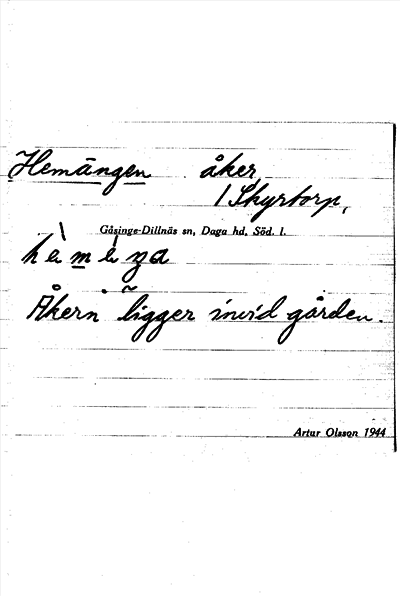 Hemängen åker
1 Skyrtorp,
Gåsinge-Dillnäs sn, Daga hd, Söd. l.
Åkern ligger invid gården.
Artur Olsson 1944